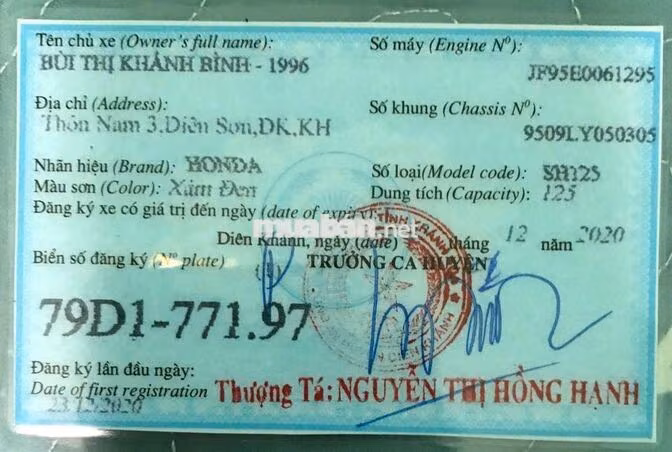 Tên chủ xe (Owner's full name):
BÙI THỊ KHÁNH BÌNH - 1996
Số máy (Engine Nº):
JF95E0061295
Địa chỉ (Address):
Thôn Nam 3,Diên Sơn,DK,KH
Số khung (Chassis Nº):
9509LY050305
Nhãn hiệu (Brand): HONDA
Số loại(Model code): SH125
Màu sơn (Color): Xám Đen
Dung tích (Capacity): 125
Đăng ký xe có giá trị đến ngày (date of expiry):
muaban.net
Diên Khánh, ngày (date) tháng 12 năm 2020
Biển số đăng ký (Nº plate)
TRƯỞNG CA HUYỆN
79D1-771.97
Đăng ký lần đầu ngày:
Date of first registration
23/12/2020
Thượng Tá: NGUYỄN THỊ HỒNG HẠNH